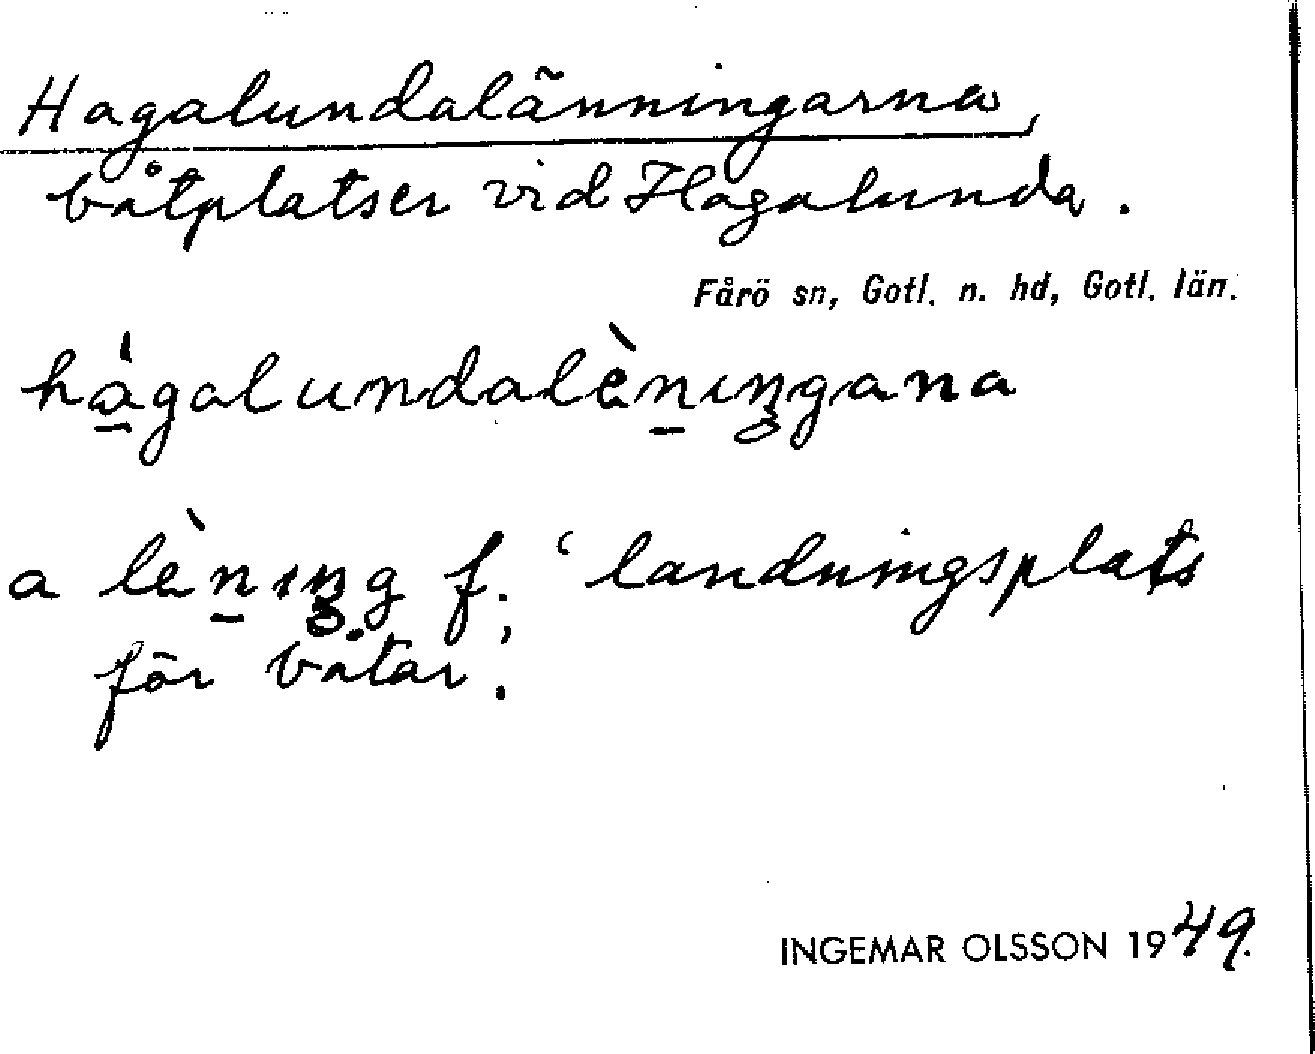 Hagalundalänningarna,
båtplatser vid Hagalunda.
Fårö sn, Gotl. n. hd, Gotl. län.
há̱galundalèṉıŋgana
a lèṉıŋg f. ‘landningsplats
för båtar’.
INGEMAR OLSSON 1949.